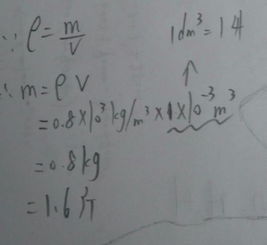 ∵ ρ = m/V
1dm³ = 1升
↑
∴ m = ρ V
= 0.8×10³kg/m³ × 1×10⁻³m³
= 0.8kg
= 1.6斤